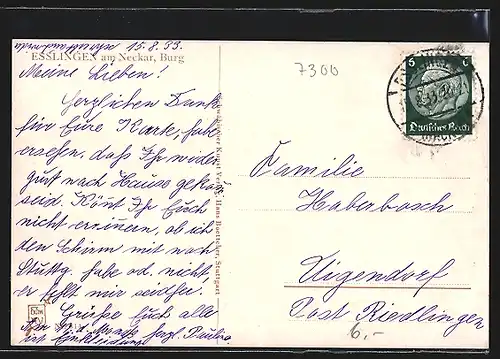 15.8.33.
ESSLINGEN am Neckar, Burg
Meine Lieben!
Herzlichen Dank
für Eure Karte, habe
ersehen, daß Ihr wieder
gut nach Hause gekom
seid. Könt Ihr Euch
nicht erinnern, ob ich
den Schirm mit nach
Stuttg. habe od. nicht,
er fehlt mir seither.
Grüße Euch alle
Hans Boettcher, Stuttgart
7300
5
Deutsches Reich
Familie
Haberbosch
Uigendorf
Post Riedlingen
6.-